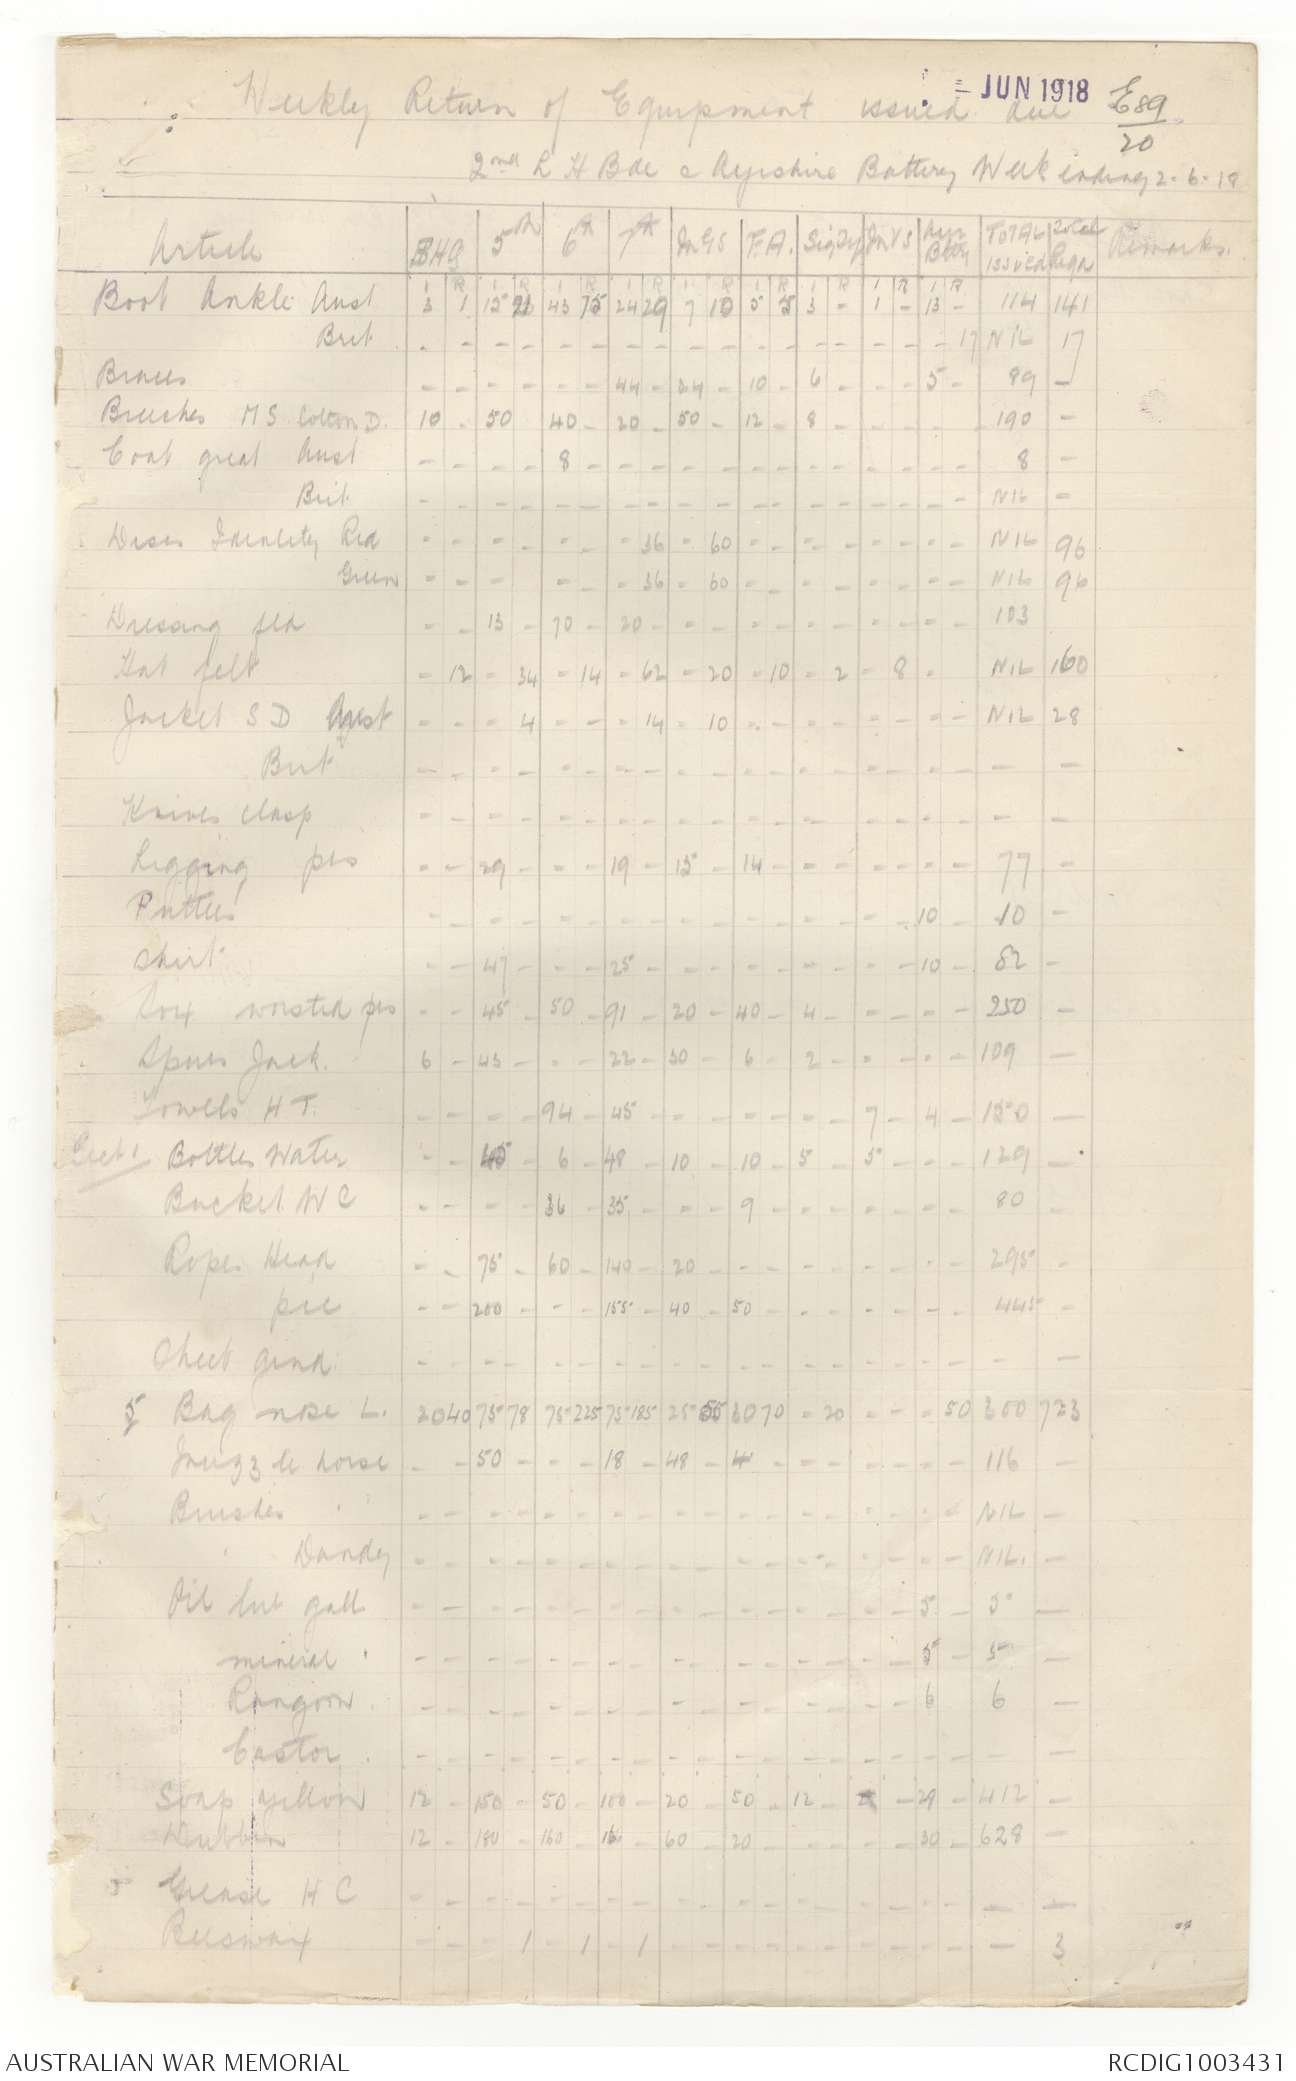 - JUN 1918
Weekly Return of Equipment issued due E89/20
2nd L H Bde & Ayrshire Battery Week ending 2-6-18
Article BHQ 5th 6th 7th M G S F.A. Sig Tp V S Btty TOTAL ISSUED Total Reqn Remarks.
I R I R I R I R I R I R I R I R I R
Boot Ankle Aust 3 1 15 21 43 75 24 29 7 10 5 5 3 - 1 - 13 - 114 141
Brit - - - - - - - - - - - - - - - - - 17 NIL 17
Braces - - - - - - 44 - 24 - 10 - 6 - - - 5 - 89 -
Breeches M S Cotton D. 10 - 50 40 - 20 - 50 - 12 - 8 - - - - - 190 -
Coat great Aust - - - - 8 - - - - - - - - - - - - - 8 -
Brit - - - - - - - - - - - - - - - - - - NIL -
Discs Identity Red - - - - - - - 36 - 60 - - - - - - - - NIL 96
Green - - - - - - 36 - 60 - - - - - - - - NIL 96
Dressing fld - - 13 - 70 - 20 - - - - - - - - - - - 103
Hat felt - 12 - 34 - 14 - 62 - 20 - 10 - 2 - 8 - NIL 160
Jacket S D Aust - - - 4 - - - 14 - 10 - - - - - - - - NIL 28
Brit - - - - - - - - - - - - - - - - - - - -
Knives clasp - - - - - - - - - - - - - - - - - - - -
Legging prs - - 29 - - - 19 - 15 - 14 - - - - - - - 77 -
Puttees - - - - - - - - - - - - - - - - 10 - 10 -
Shirt - - 47 - - - 25 - - - - - - - - - 10 - 82 -
Sox worsted prs - - 45 - 50 - 91 - 20 - 40 - 4 - - - - - 250 -
Spurs Jack. 6 - 43 - - - 22 - 30 - 6 - 2 - - - - - 109 -
Towells H T. - - - - 94 - 45 - - - - - - - 7 - 4 - 150 -
Sect 1 Bottles Water - - 45 - 6 - 48 - 10 - 10 - 5 - 5 - - - 129 -
Bucket W C - - - - 36 - 35 - - - 9 - - - - - - - 80 -
Ropes Head - - 75 - 60 - 140 - 20 - - - - - - - - - 295 -
pic - - 200 - - - 155 - 40 - 50 - - - - - - - 445 -
Sheet grnd - - - - - - - - - - - - - - - - - - - -
5 Bag nose L. 20 40 75 78 75 225 75 185 25 55 30 70 - 20 - - - 50 300 723
Muzzle horse - - 50 - - - 18 - 48 - 4 - - - - - - - 116 -
Brushes - - - - - - - - - - - - - - - - - - NIL -
Dandy - - - - - - - - - - - - - - - - - - NIL. -
Oil lub gall - - - - - - - - - - - - - - - - 5 - 5 -
mineral - - - - - - - - - - - - - - - - 5 - 5 -
Rangoon - - - - - - - - - - - - - - - - 6 - 6 -
Castor - - - - - - - - - - - - - - - - - - - -
Soap yellow 12 - 150 - 50 - 100 - 20 - 50 - 12 - - 29 - 412 -
Dubbin 12 - 180 - 160 - 60 - 20 - - - - - 30 - 628 -
5 Grease H C - - - - - - - - - - - - - - - - - - - -
Beeswax - - - 1 - 1 - 1 - - - - - - - - - - - 3
AUSTRALIAN WAR MEMORIAL RCDIG1003431